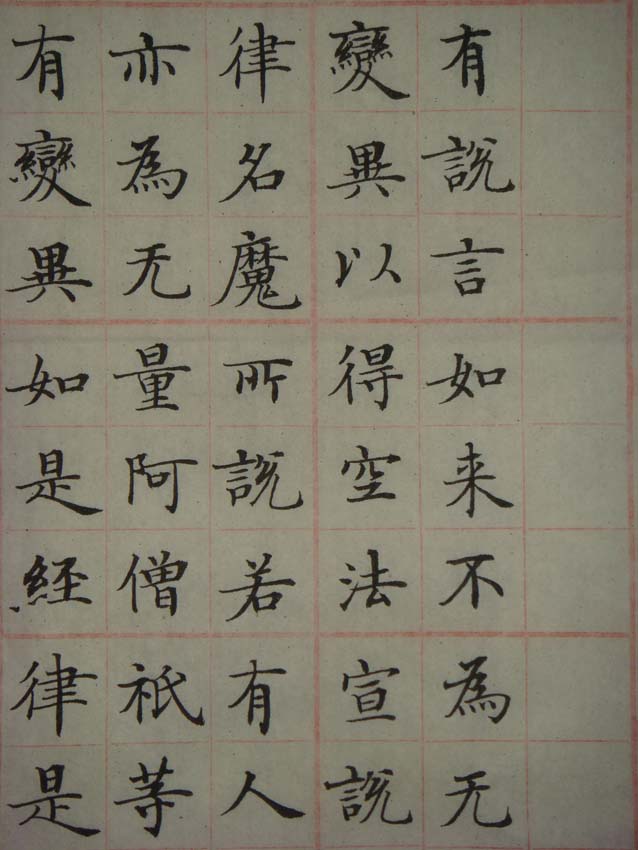 有說言如来不為无
變異以得空法宣說
律名魔所說若有人
亦為无量阿僧祇等
有變異如是経律是